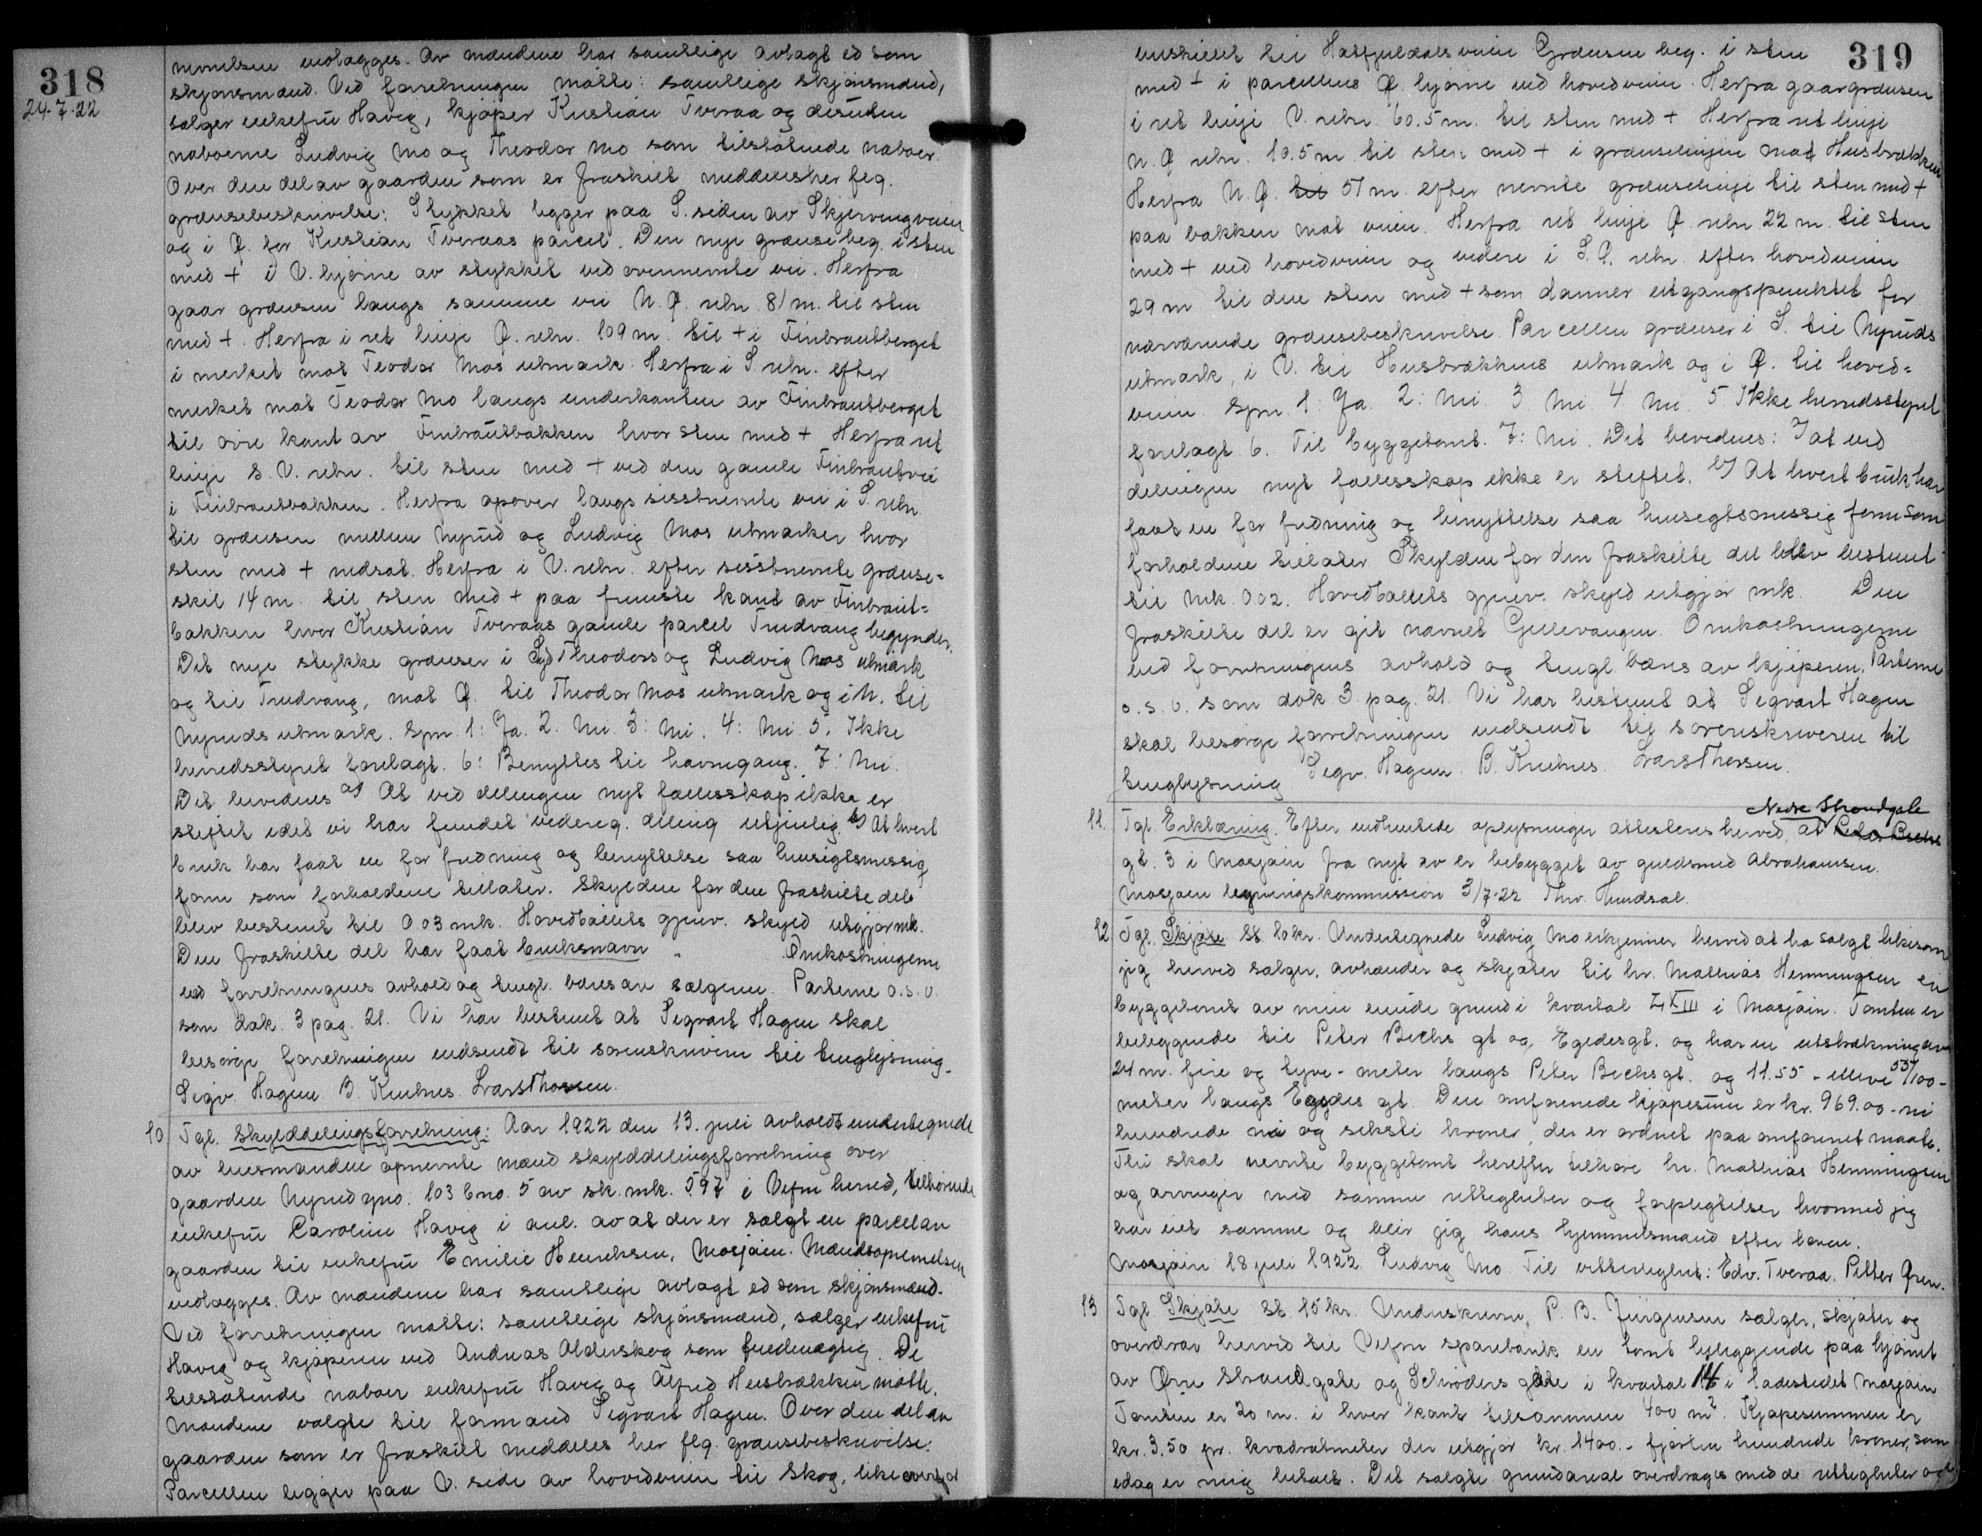 318
24.7.22
nevnelsen vedlægges. Av mændene har samtlige avlagt ed som
skjønsmænd. Ved forretningen møtte: samtlige skjønsmænd,
sælger enkefru Havig, kjøper Kristian Tveraa og desuten
naboerne Ludvig Mo og Theodor Mo som tilstøtende naboer.
Over den del av gaarden som er fraskilt meddeles her flg.
grænsebeskrivelse: Stykket ligger paa S. siden av Skjervengveien
og i Ø. for Kristian Tveraas parcel. Den nye grænse beg. i sten
med + i V. hjørne av stykket ved ovennevnte vei. Herfra
gaar grænsen langs samme vei N.Ø. retn. 81 m. til sten
med +. Herfra i ret linje Ø. retn. 109 m. til + i Finbrautberget
i merket mot Teodor Mos utmark. Herfra i S. retn. efter
merket mot Teodor Mo langs underkanten av Finbrautberget
til øvre kant av Finbrautbakken hvor sten med + Herfra ret
linje S.V. retn. til sten med + ved den gamle Finbrautvei
i Finbrautbakken. Herfra opover langs sisstnevnte vei i S. retn.
til grænsen mellem Nyrud og Ludvig Mos utmarker hvor
sten med + nedsat. Herfra i V. retn. efter sisstnevnte grænse=
skil 14 m. til sten med + paa fremste kant av Finbraut=
bakken hvor Kristian Tveraas gamle parcel Trudvang begynder.
Det nye stykke grænser i Syd Theodors og Ludvig Mos utmark
og til Trudvang, mot Ø. til Theodor Mos utmark og i N. til
Nyruds utmark. Spm. 1: Ja. 2. Nei 3: Nei. 4: Nei 5: Ikke
herredsstyret forelagt. 6: Benyttes til havnegang. 7: Nei.
Det bevidnes a) At ved delingen nyt fællesskap ikke er
stiftet idet vi har fundet vedereg. deling utjenlig. b) At hvert
bruk har faat en for fredning og benyttelse saa hensigtsmessig
form som forholdene tillater. Skylden for den fraskilte del
blev bestemt til 0 03 mk. Hovedbøllets gjenv. skyld utgjør mk.
Den fraskilte del har faat bruksnavn " Omkostningerne
ved forretningens avhold og tingl. bæres av sælgeren. Parterne o.s.v.
som dok. 3 pag. 21. Vi har bestemt at Sigvart Hagen skal
besørge forretningen indsendt til sorenskriveren til tinglysning.
Sigv. Hagen. B. Knutnes. Lars Thossen.
10 Tgl. Skylddelingsforretning: Aar 1922 den 13. juli avholdt undertegnede
av lensmanden opnevnte mænd skylddelingsforretning over
gaarden Nyrud gno. 103 bno. 5 av sk. mk. 597 i Vefsn herred, tilhørende
enkefru Caroline Havig i anl. av at der er sælgt en parcel av
gaarden til enkefru Emilie Henriksen, Mosjøen. Mændsopnevnelsen
vedlægges. Av mændene har samtlige avlagt ed som skjønsmænd.
Ved forretningen møtte: samtlige skjønsmænd, sælger enkefru
Havig og kjøperen ved Andreas Alderskog som fuldmægtig. De
tilstøtende naboer enkefru Havig og Alfred Husbrækken møtte.
Mændene valgte til formand Sigvart Hagen. Over den del av
gaarden som er fraskilt meddeles her flg. grænsebeskrivelse:
Parcellen ligger paa V. side av hovedveien til Skog, like ovenfor
319
veiskillet til Hatfjeldals veien Grænsen beg. i sten
med + i parcellens Ø. hjørne ved hovedveien. Herfra gaar grænsen
i ret linje V. retn. 60.5 m. til sten med + Herfra ret linje
N.Ø. retn. 10.5 m. til sten med + i grænselinjen mot Husbrækken
Herfra N.Ø. til 51 m. efter nevnte grænselinje til sten med +
paa bakken mot veien. Herfra ret linje Ø. retn 22 m. til sten
med + ved hovedveien og videre i S.Ø. retn. efter hovedveien
29 m til den sten med + som danner utgangspunktet for
nærværende grænsebeskrivelse. Parcellen grænser i S. til Nyruds
utmark, i V. til Husbrækkens utmark og i Ø. til hoved=
veien. Spm. 1: Ja. 2: Nei. 3 Nei 4 Nei. 5 Ikke herredsstyret
forelagt. 6. Til byggetomt. 7: Nei. Det bevidnes: a) at ved
delingen nyt fællesskap ikke er stiftet. b) At hvert bruk har
faat en for fredning og benyttelse saa hensigtsmessig form som
forholdene tillater. Skylden for den fraskilte del blev bestemt
til mk. 0 02. Hovedbøllets gjenv. skyld utgjør mk. Den
fraskilte del er git navnet Gullvangen. Omkostningerne
ved forretningens avhold og tingl. bæres av kjøperen. Parterne
o.s.v. som dok 3 pag. 21. Vi har bestemt at Sigvart Hagen
skal besørge forretningen indsendt til sorenskriveren til
tinglysning Sigv. Hagen. B. Knutnes. Lars Thossen.
Nedre Strandgate
11. Tgl. Erklæring. Efter indhentede oplysninger attesteres herved, at Peter Bechs
gt. 3 i Mosjøen fra nyt av er bebygget av guldsmed Abrahamsen.
Mosjøen ligningskommission 3/7-22 Thv. Hundsal.
12 Tgl. Skjøte St. 10 kr. Undertegnede Ludvig Mo erkjenner herved at ha solgt likesom
jeg herved sælger, avhænder og skjøter til hr. Mathias Henningsen en
byggetomt av min eiende grund i kvartal LXIII i Mosjøen. Tomten er
beliggende til Peter Bechs gt og Egedesgt. og har en utstrækning av
24 m. fire og tyve - meter langs Peter Bechs gt. og 11.55 - elleve 55/100 -
meter langs Egedes gt. Den omforenede kjøpesum er kr. 969.00 - ni
hundrede ni og seksti kroner, der er ordnet paa omforenet maate.
Thi skal nevnte byggetomt herefter tilhøre hr. Mathias Henningsen
og arvinger med samme rettigheter og forpligtelser hvormed jeg
har eiet samme og blir jeg hans hjemmelsmand efter loven.
Mosjøen 18 juli 1922 Ludvig Mo. Til vitterlighet: Edv. Tveraa. Petter Øren.
13 Tgl. Skjøte St. 15 kr. Underskrevne, P. B. Jürgensen sælger, skjøter og
overdrar herved til Vefsn sparebank en tomt beliggende paa hjørnet
av Øvre Strandgate og Schrøders gate i kvartal 14 i ladestedet Mosjøen
Tomten er 20 m. i hver kant tilsammen 400 m². Kjøpesummen er
kr. 3,50 pr. kvadratmeter der utgjør kr. 1400.- fjorten hundrede kroner, som
idag er mig betalt. Det solgte grundareal overdrages med de rettigheter og